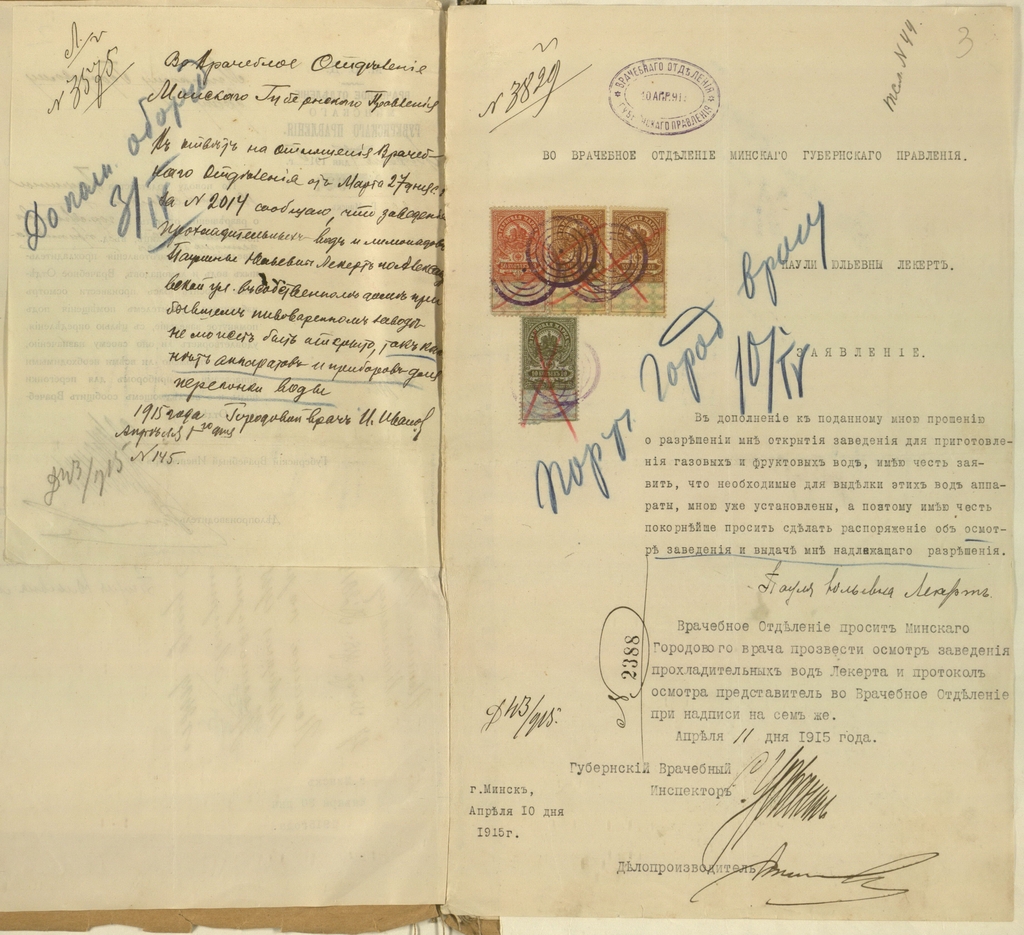 № 3575
Во Врачебное Отдѣленіе
Минскаго Губернскаго Правленія
Въ отвѣтъ на отношенія Врачеб-
наго Отдѣленія отъ Марта 27 дня
за № 2014 сообщаю, что заведеніе
прохладительныхъ водъ и лимонадовъ
Паулины Юльевны Лекертъ по
ул. въ собственномъ домѣ при
бывшемъ пивоваренномъ заводѣ
не можетъ быть открыто, такъ какъ
нѣтъ аппаратовъ и приборовъ для
перегонки воды
1915 года Городовой врачъ И. Ивановъ
Апрѣля 1 дня
№ 145.
Д 43/915
До пол. оборо
3/IV
3
№ 3829
ВРАЧЕБНАГО ОТДѢЛЕНІЯ
10 АПР. 191
ГУБЕРНСКАГО ПРАВЛЕНІЯ
ВО ВРАЧЕБНОЕ ОТДѢЛЕНІЕ МИНСКАГО ГУБЕРНСКАГО ПРАВЛЕНІЯ.
ПАУЛИ ЮЛЬЕВНЫ ЛЕКЕРТЪ.
Пор гп. Город врачу
10/IV
ЗАЯВЛЕНІЕ.
Въ дополненіе къ поданному мною прошенію
о разрѣшеніи мнѣ открытія заведенія для приготовле-
нія газовыхъ и фруктовыхъ водъ, имѣю честь зая-
вить, что необходимые для выдѣлки этихъ водъ аппа-
раты, мною уже установлены, а поэтому имѣю честь
покорнѣйше просить сдѣлать распоряженіе объ осмот-
рѣ заведенія и выдачѣ мнѣ надлежащаго разрѣшенія.
Пауля Юльевна Лекертъ.
Врачебное Отдѣленіе проситъ Минскаго
Городового врача прозвести осмотръ заведенія
прохладительныхъ водъ Лекерта и протоколъ
осмотра представитель во Врачебное Отдѣленіе
при надписи на семъ же.
Апрѣля 11 дня 1915 года.
№ 2388
Д 43/915.
Губернскій Врачебный
Инспекторъ
г.Минскъ,
Апрѣля 10 дня
1915г.
Дѣлопроизводитель